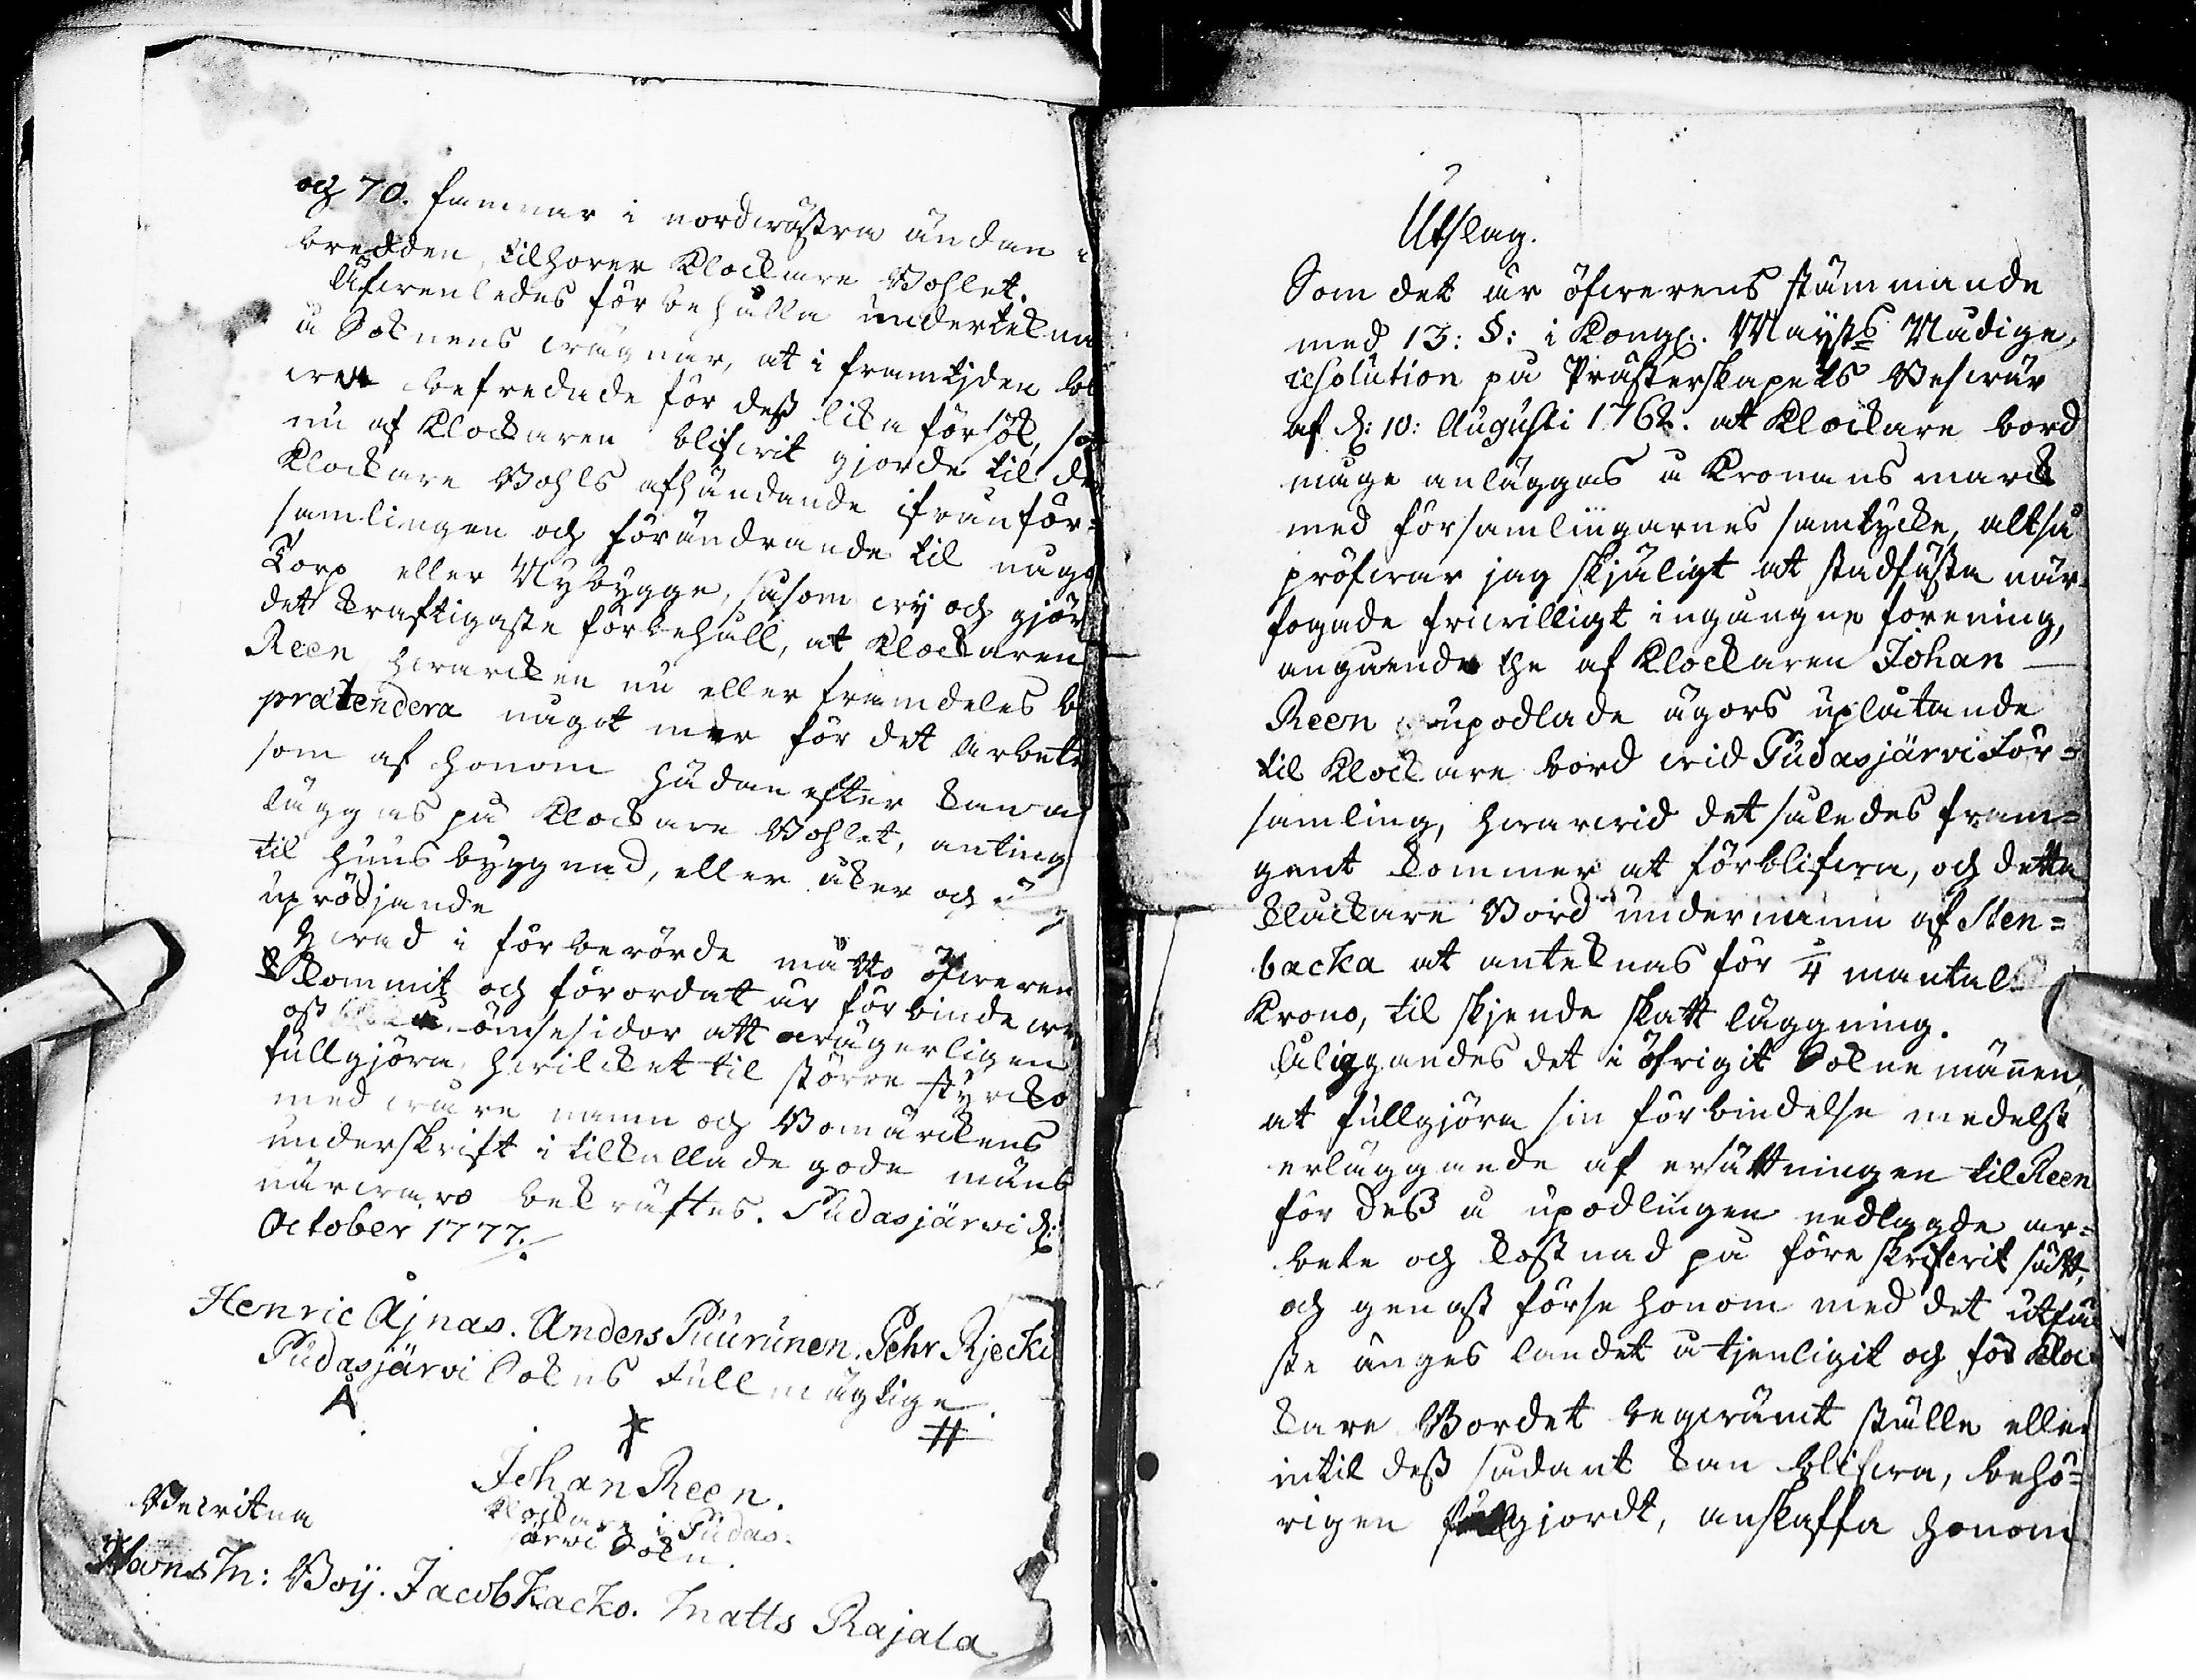 och 70. famnar i nordwästra ändan i
bredden, tilhörer Klockare Bohlet.
Äfwenledes förbehålla undertekna
å Soknens wägnar, at i framtijden bli
wer befredade för dess lika försök, som
nu af Klockaren blifwit gjorde til de
Klockare Bohls afhändande ifrån för=
samlingen och förändrande til någo
Torp eller Nybygge, såsom wij och gjör
det kraftigaste förbehåll, at Klockaren
Reen hwarcken nu eller framdeles
prætendera något mer för det Arbete
som af honom hädan efter kan
läggas på Klockare Bohlet, anting
til huus byggnad, eller åker och
uprödjande
Hwad i förberörde måtto öfweren
kommit och förordat är förbinde wi
oss å ömse sidor att orågerligen
fullgjöra, hwilcket til större styrcko
med wåre namn och Bomärckens
underskrift i tilkallade gode mäns
närwaro bekräftes. Pudasjärvi d:
October 1777.
Henric Ajnas. Anders Puurunen. Pehr Rjecki
Pudasjärvi Sokns Fullmägtige.
Johan Reen.
Klockare i Pudas=
järvi Sokn.
Bewitna
Hans M: Boij. Jacob Kacko. Matts Rajala
Utslag.
Som det är öfwerens stämmande
med 13: §: i Kongl. Maijts Nådige
resolution på Prästerskapets Beswär
af d: 10: Augusti 1762. at Klockare bord
måge anläggas å Kronans marck
med församlingarnes samtycke, altså
pröfwar jag skjäligt at stadfästa när=
fogade friwilligt ingångne förening,
angående the af Klockaren Johan
Reen upodlade ägors uplåtande
til Klockare bord wid Pudasjärvi För=
samling, hwarwid det således fram=
gent kommer at förblifwa, och detta
Klackare Bord under namn af Sten=
backa at anteknas för 1/4 mantal
Krono, til skjende skatt läggning.
Åliggandes det i öfrigit Soknemännen,
at fullgjöra sin förbindelse medelst
erläggande af ersättningen til Reen
för dess å upodlingen nedlagde ar=
bete och kostnad på före skrifwit sätt,
och genast förse honom med det utfä
ste änges landet å tjenligit och för Kloc=
kare Bordet beqwämt ställe eller
intil dess sådant kan blifwa, behö=
rigen fullgjordt, anskaffa honom